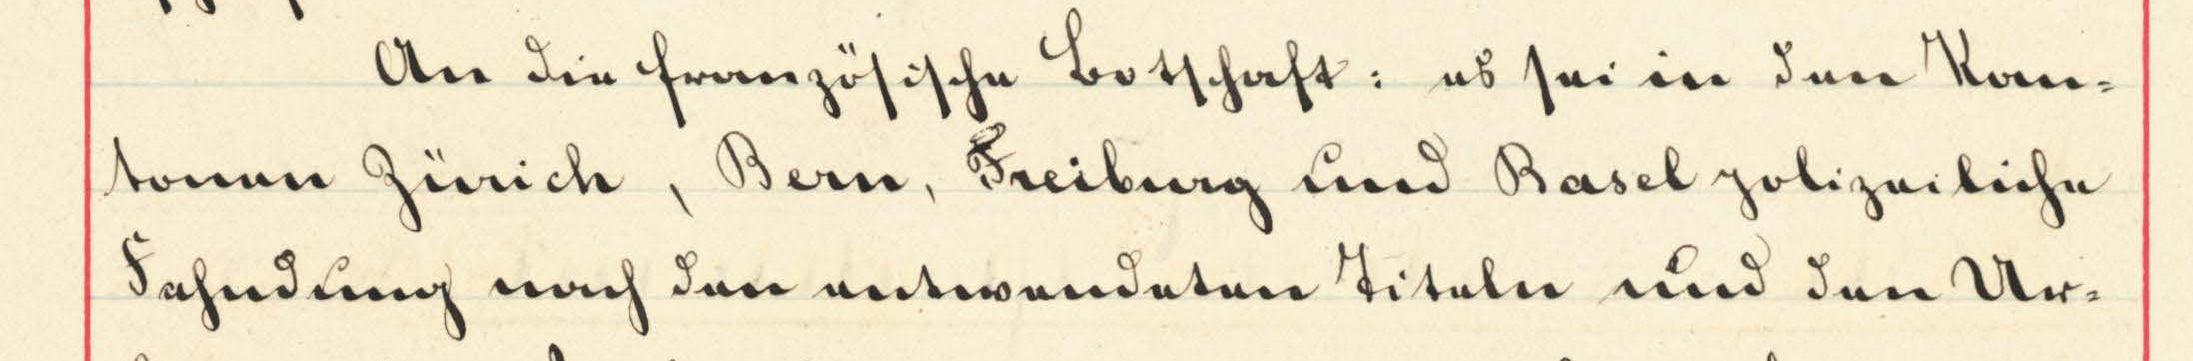 An die französische Botschaft: es sei in den Kan-
tonen Zürich, Bern, Freiburg und Basel polizeiliche
Fahndung nach den entwendeten Titeln und den Ur-